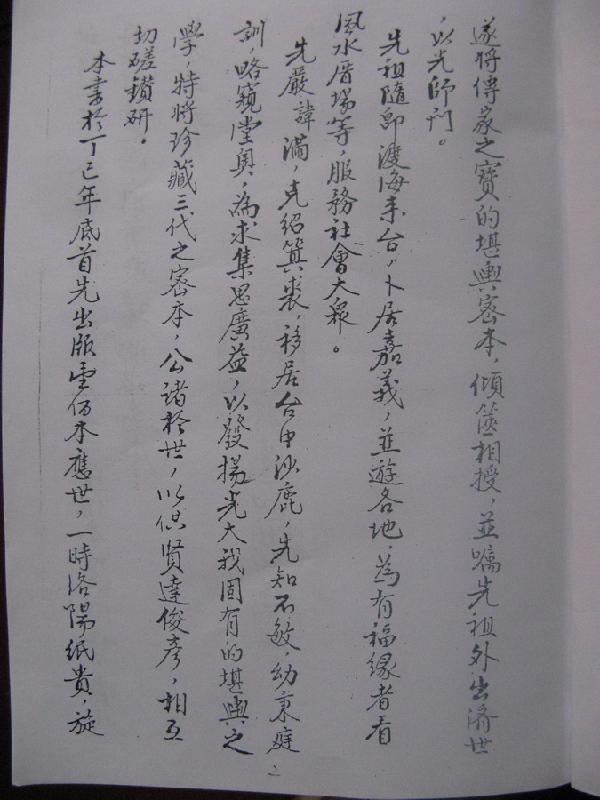 遂將傳家之寶的堪輿密本，傾篋相授，並囑先祖外出濟世
，以光師門。
先祖隨即渡海來台，卜居嘉義，並遊各地，為有福緣者看
風水厝場等，服務社會大眾。
先嚴諱滿，克紹箕裘，移居台中沙鹿，先知不敏，幼秉庭
訓，略窺堂奧，為求集思廣益，以發揚光大我固有的堪輿之
學，特將珍藏三代之密本，公諸於世，以供賢達俊彥，相互
切磋鑽研。
本書於丁巳年底首先出版，一時洛陽紙貴，旋